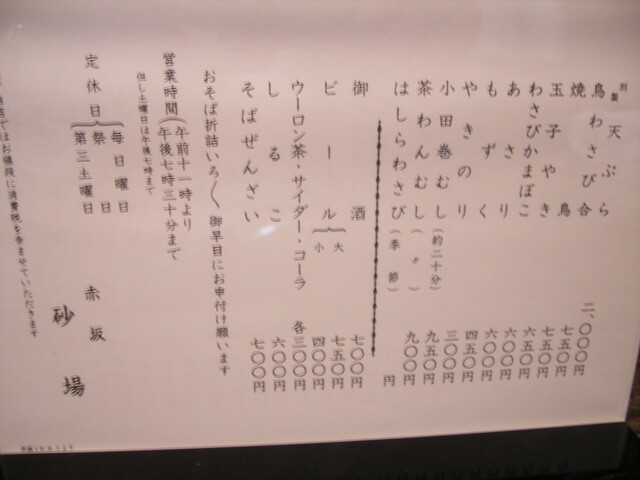 別製 天ぷら 二、〇〇〇円
鳥わさび合 七五〇円
焼鳥 七五〇円
玉子やき 六五〇円
わさびかまぼこ 六〇〇円
あさり 六〇〇円
もずく 四五〇円
やきのり 三〇〇円
小田巻むし(約二十分) 九五〇円
茶わんむし(〃) 九〇〇円
はしらわさび(季節) 円
御酒 七〇〇円
ビール 大 七五〇円
小 四〇〇円
ウーロン茶・サイダー・コーラ 各三〇〇円
しるこ 六〇〇円
そばぜんざい 七〇〇円
おそば折詰いろ〱御早目にお申付け願います
営業時間(午前十一時より
午後七時三十分まで
但し土曜日は午後七時まで
定休日 毎日曜日
祭日
第三土曜日
赤坂 砂場
はお値段に消費税を含ませていただきます